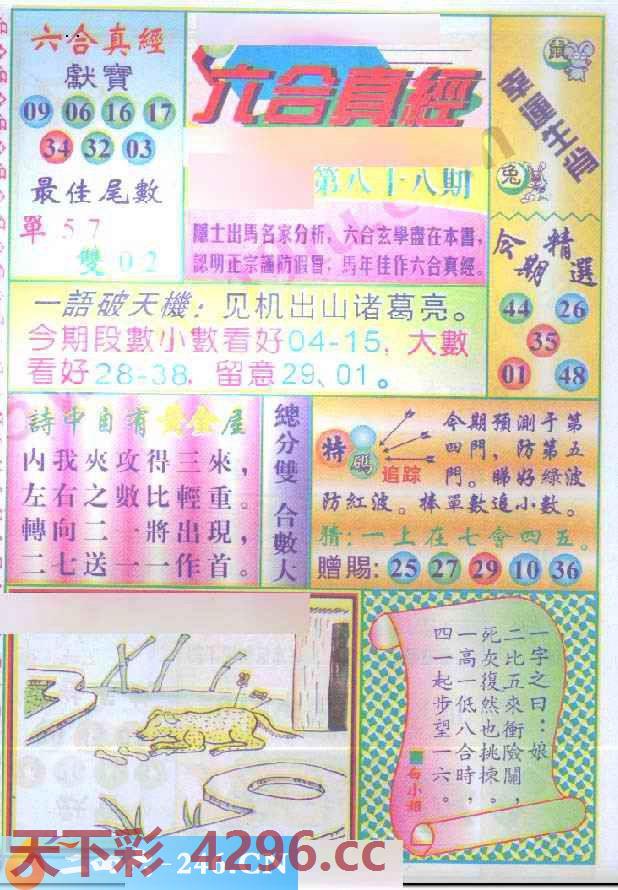 六合真經
獻寶
09 06 16 17
34 32 03
最佳尾數
單 5 7
雙 0 2
六合真經
第八十八期
隱士出馬名家分析，六合玄學盡在本書，
認明正宗謹防假冒，馬年佳作六合真經。
鼠
幸運生肖
兔
今期精選
44 26
35
01 48
一語破天機：见机出山诸葛亮。
今期段數小數看好04-15，大數
看好28-38，留意29、01。
詩中自有黃金屋
内我夾攻得三來，
左右之數比輕重。
轉向二一將出現，
二七送一一作首。
總分雙 合數大
特碼
追踪
今期預測于第
四門，防第五
門。睇好綠波
防紅波。棒單數追小數。
猜：一上在七會四五。
贈賜：25 27 29 10 36
一字之曰：娘
二比五來衝險關，
死灰復然也挑揀。
一高一低八合時，
四一起步望一六。
白小姐
246.CN
天下彩 4296.cc